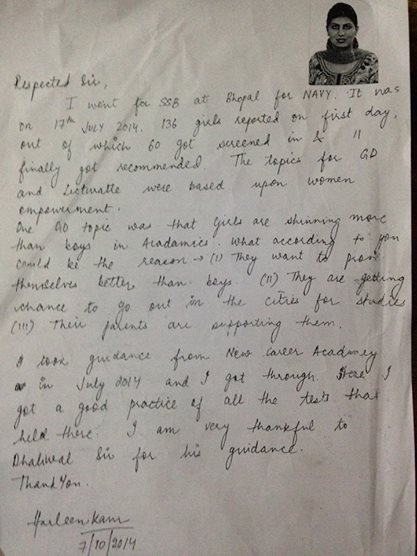 Respected Sir,
I went for SSB at Bhopal for NAVY. It was
on 17th JULY 2014. 136 girls reported on first day,
out of which 60 got screened in & 11
finally got recommended The topics for GD
and Lecturatte were based upon women
empowerment.
One GD topic was that Girls are shinning more
than boys in Acadamics. What according to you
could be the reason → (I) They want to prove
themselves better than boys. (II) They are getting
chance to go out in the cities for studies
(III) Their parents are supporting them.
I took guidance from New Career Academy
in July 2014 and I got through. Here I
got a good practice of all the tests that
held there. I am very thankful to
Dhaliwal Sir for his guidance.
Thank You.
Harleen Kaur
7/10/2014